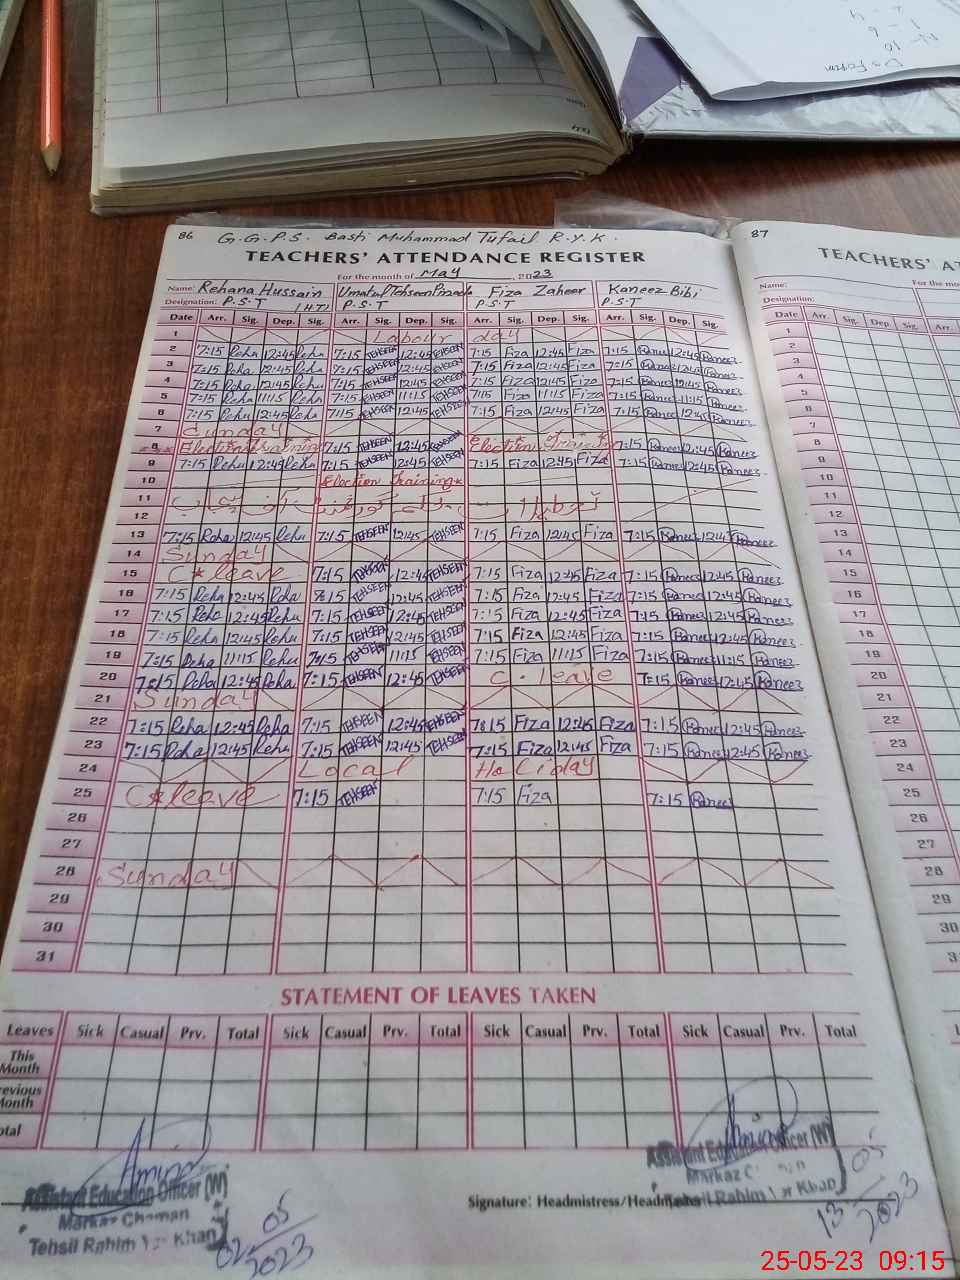 Ds Form
N- 10
1 - 6
86 G.G.P.S. Basti Muhammad Tufail R.Y.K. 87
TEACHERS' ATTENDANCE REGISTER
For the month of May, 2023
Name: Rehana Hussain Umatul Tehseen Fiza Zaheer Kaneez Bibi
Designation: P.S.T (HT) P.S.T P.S.T P.S.T
Date Arr. Sig. Dep. Sig. Arr. Sig. Dep. Sig. Arr. Sig. Dep. Sig. Arr. Sig. Dep. Sig.
1 Labour day
2 7:15 Reha 12:45 Reha 7:15 TEHSEEN 12:45 TEHSEEN 7:15 Fiza 12:45 Fiza 7:15 Kaneez 12:45 Kaneez
3 7:15 Reha 12:45 Reha 7:15 TEHSEEN 12:45 TEHSEEN 7:15 Fiza 12:45 Fiza 7:15 Kaneez 12:45 Kaneez
4 7:15 Reha 12:45 Reha 7:15 TEHSEEN 12:45 TEHSEEN 7:15 Fiza 12:45 Fiza 7:15 Kaneez 12:45 Kaneez
5 7:15 Reha 11:15 Reha 7:15 TEHSEEN 11:15 TEHSEEN 7:15 Fiza 11:15 Fiza 7:15 Kaneez 11:15 Kaneez
6 7:15 Reha 12:45 Reha 7:15 TEHSEEN 12:45 TEHSEEN 7:15 Fiza 12:45 Fiza 7:15 Kaneez 12:45 Kaneez
7 Sunday
8 Election training 7:15 TEHSEEN 12:45 Election Training 7:15 Kaneez 12:45 Kaneez
9 7:15 Reha 12:45 Reha 7:15 TEHSEEN 12:45 TEHSEEN 7:15 Fiza 12:45 Fiza 7:15 Kaneez 12:45 Kaneez
10 Election training
11
12
13 7:15 Reha 12:45 Reha 7:15 TEHSEEN 12:45 TEHSEEN 7:15 Fiza 12:45 Fiza 7:15 Kaneez 12:45 Kaneez
14 Sunday
15 C*leave 7:15 TEHSEEN 12:45 TEHSEEN 7:15 Fiza 12:45 Fiza 7:15 Kaneez 12:45 Kaneez
16 7:15 Reha 12:45 Reha 7:15 TEHSEEN 12:45 TEHSEEN 7:15 Fiza 12:45 Fiza 7:15 Kaneez 12:45 Kaneez
17 7:15 Reha 12:45 Reha 7:15 TEHSEEN 12:45 TEHSEEN 7:15 Fiza 12:45 Fiza 7:15 Kaneez 12:45 Kaneez
18 7:15 Reha 12:45 Reha 7:15 TEHSEEN 12:45 TEHSEEN 7:15 Fiza 12:45 Fiza 7:15 Kaneez 12:45 Kaneez
19 7:15 Reha 11:15 Reha 7:15 TEHSEEN 11:15 TEHSEEN 7:15 Fiza 11:15 Fiza 7:15 Kaneez 11:15 Kaneez
20 7:15 Reha 12:45 Reha 7:15 TEHSEEN 12:45 TEHSEEN C. leave 7:15 Kaneez 12:45 Kaneez
21 Sunday
22 7:15 Reha 12:45 Reha 7:15 TEHSEEN 12:45 TEHSEEN 7:15 Fiza 12:45 Fiza 7:15 Kaneez 12:45 Kaneez
23 7:15 Reha 12:45 Reha 7:15 TEHSEEN 12:45 TEHSEEN 7:15 Fiza 12:45 Fiza 7:15 Kaneez 12:45 Kaneez
24 Local Holiday
25 C*leave 7:15 TEHSEEN 7:15 Fiza 7:15 Kaneez
26
27
28 Sunday
29
30
31
STATEMENT OF LEAVES TAKEN
Leaves Sick Casual Prv. Total Sick Casual Prv. Total Sick Casual Prv. Total Sick Casual Prv. Total
This Month
revious Month
otal
Signature: Headmistress/Headmaster
Assistant Education Officer (W)
Markaz Chaman
Tehsil Rahim Yar Khan
02 05 2023
Assistant Education Officer (W)
Markaz
Tehsil Rahim Yar Khan
13 05 2023
TEACHERS' AT
For the mo
Name:
Designation:
Date Arr. Sig. Dep. Sig. Arr.
1
2
3
4
5
6
7
8
9
10
11
12
13
14
15
16
17
18
19
20
21
22
23
24
25
26
27
28
29
30
3
25-05-23 09:15